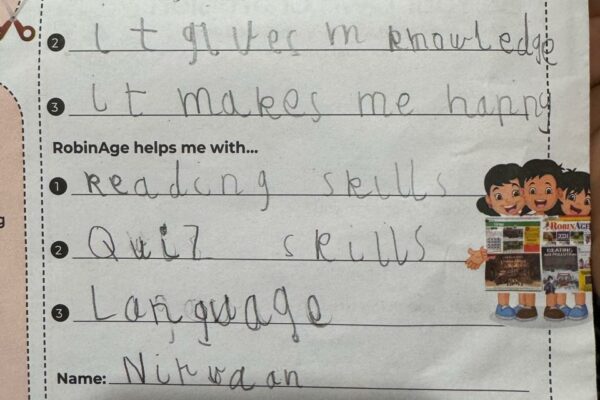 2 it gives m knowledge
3 it makes me happy
RobinAge helps me with...
1 Reading skills
2 Quiz skills
3 Language
Name: Nirvaan
ROBINAGE